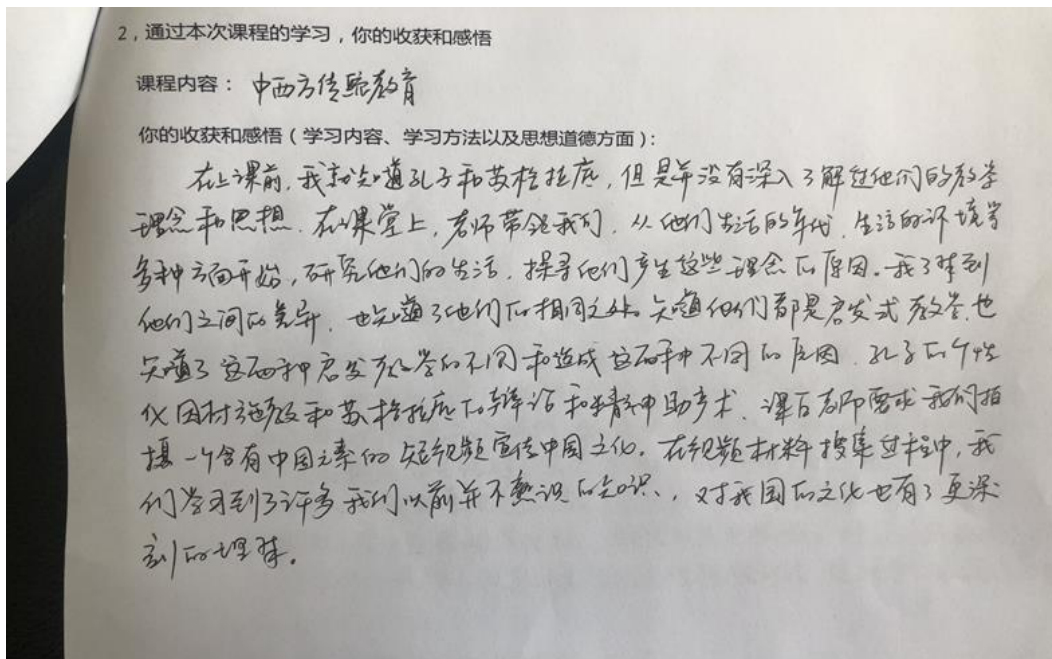 2，通过本次课程的学习，你的收获和感悟
课程内容： 中西方传统教育
你的收获和感悟（学习内容、学习方法以及思想道德方面）：
在上课前，我就知道孔子和苏格拉底，但是并没有深入了解过他们的教学
理念和思想．在课堂上，老师带领我们，从他们生活的年代、生活的环境等
多种方面开始，研究他们的生活，探寻他们产生这些理念的原因。我了解到
他们之间的差异，也知道了他们的相同之处。知道他们都是启发式教学，也
知道了这两种启发教学的不同和造成这两种不同的原因．孔子的个性
化因材施教和苏格拉底的辩论和精神助产术．课后老师要求我们拍
摄一个含有中国元素的短视频宣传中国文化。在视频材料搜集过程中，我
们学习到了许多我们以前并不熟识的知识，对我国的文化也有了更深
刻的理解。